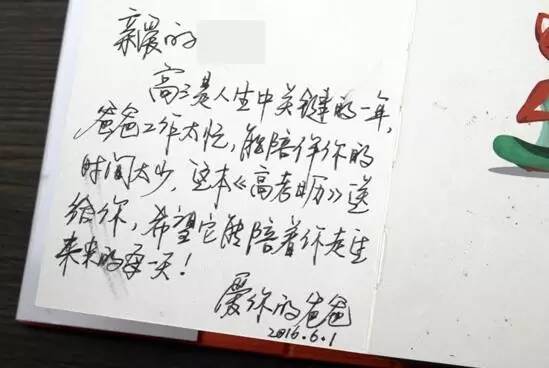 亲爱的
高三是人生中关键的一年,
爸爸工作太忙,能陪伴你的
时间太少,这本《高考日历》送
给你,希望它能陪着你走
未来的每一天!
爱你的爸爸
2016.6.1